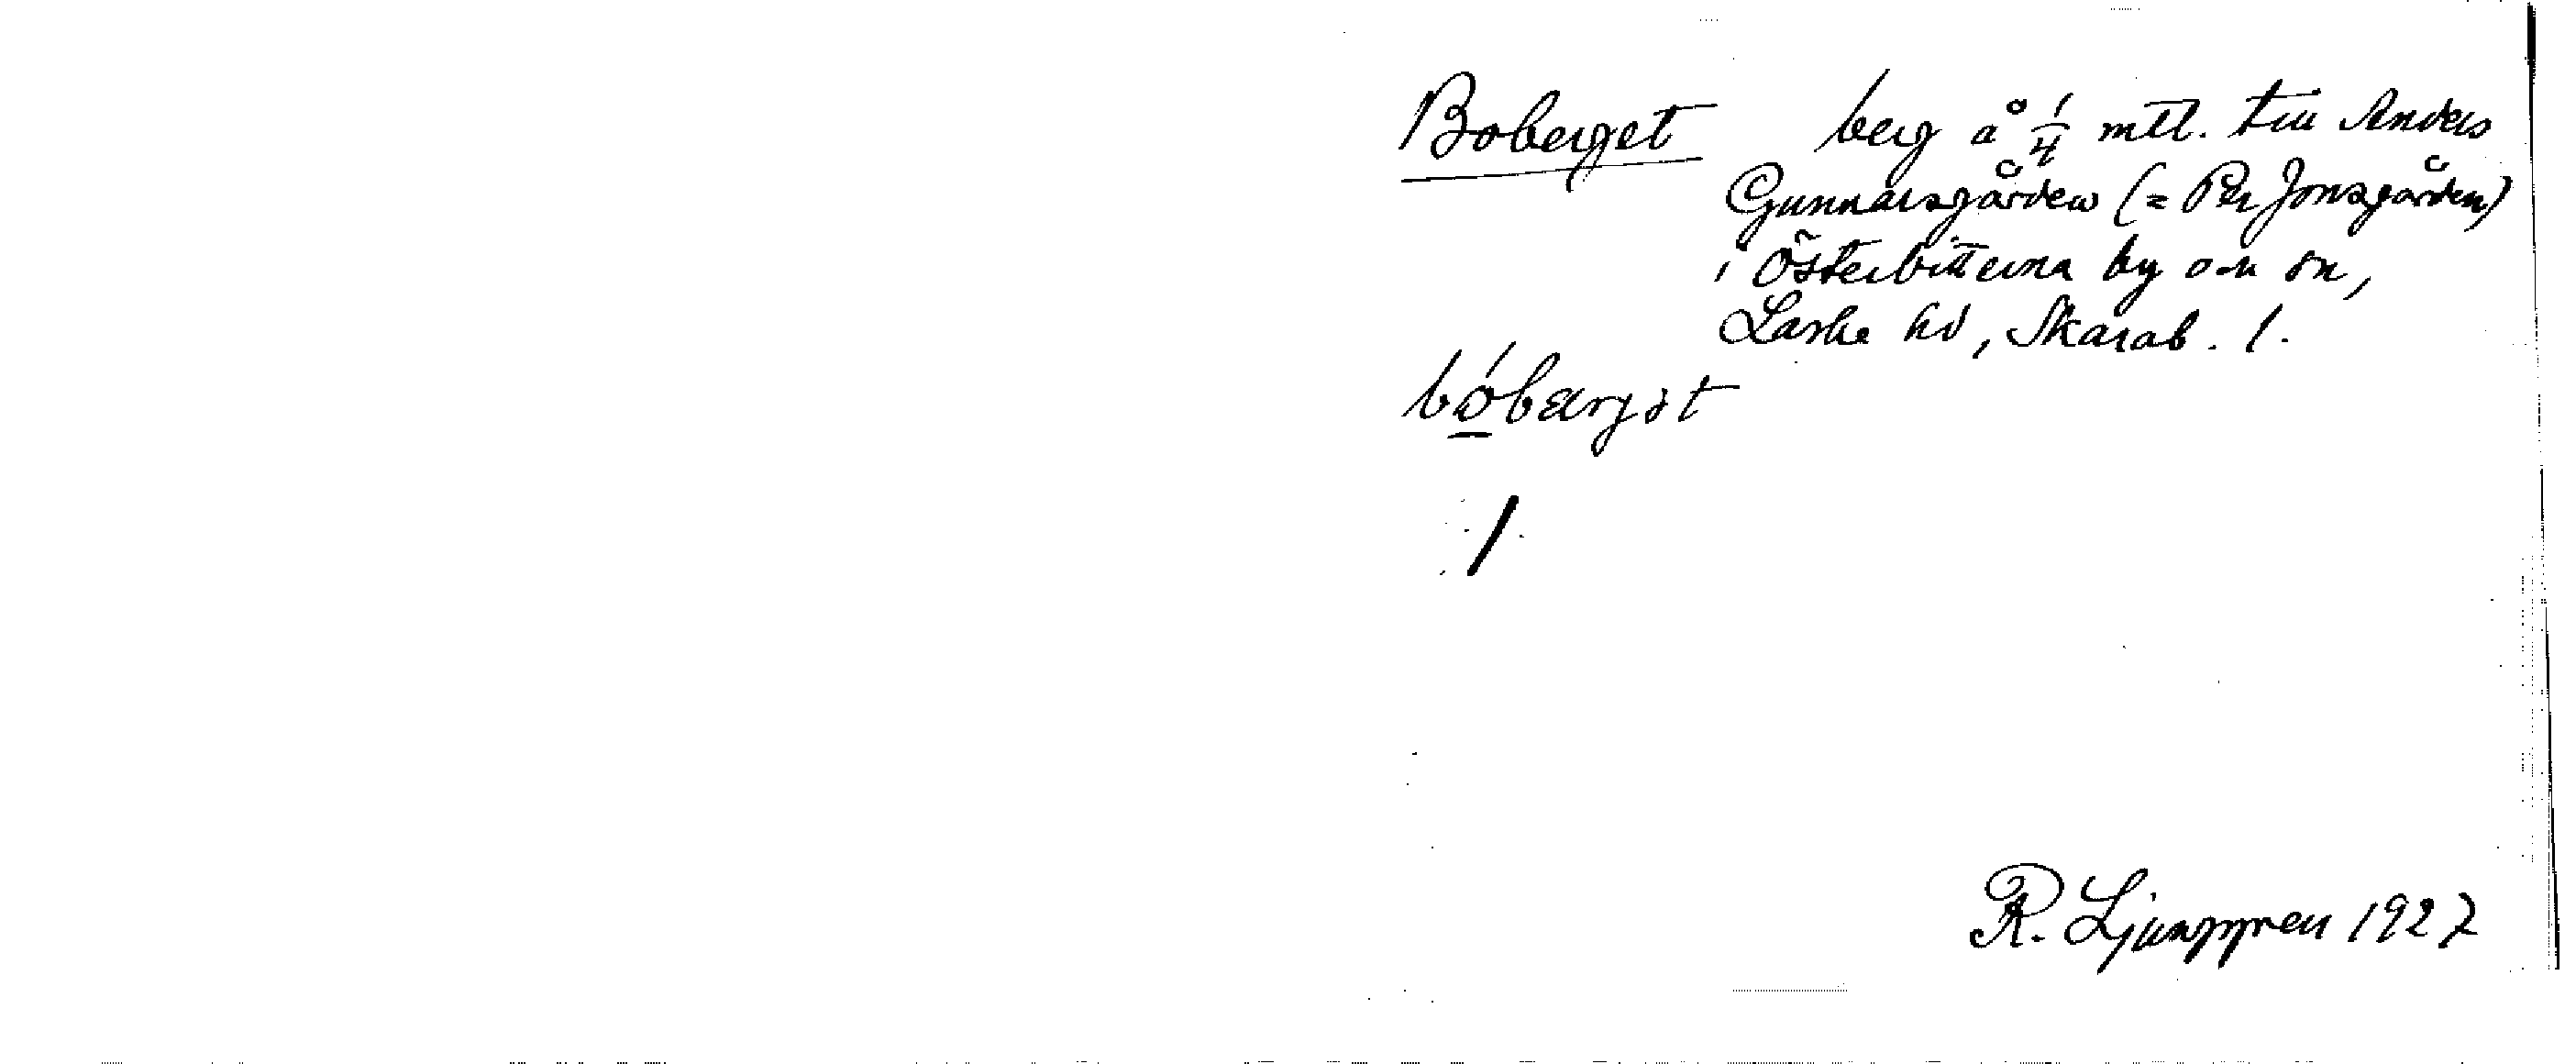 Boberget berg å 1/4 mtl. till Anders
Gunnarsgården (= Per Jonsgården)
i Österbitterna by och sn,
Laske hd, Skarab. l.
bóbærjət
/
R. Ljunggren 1927